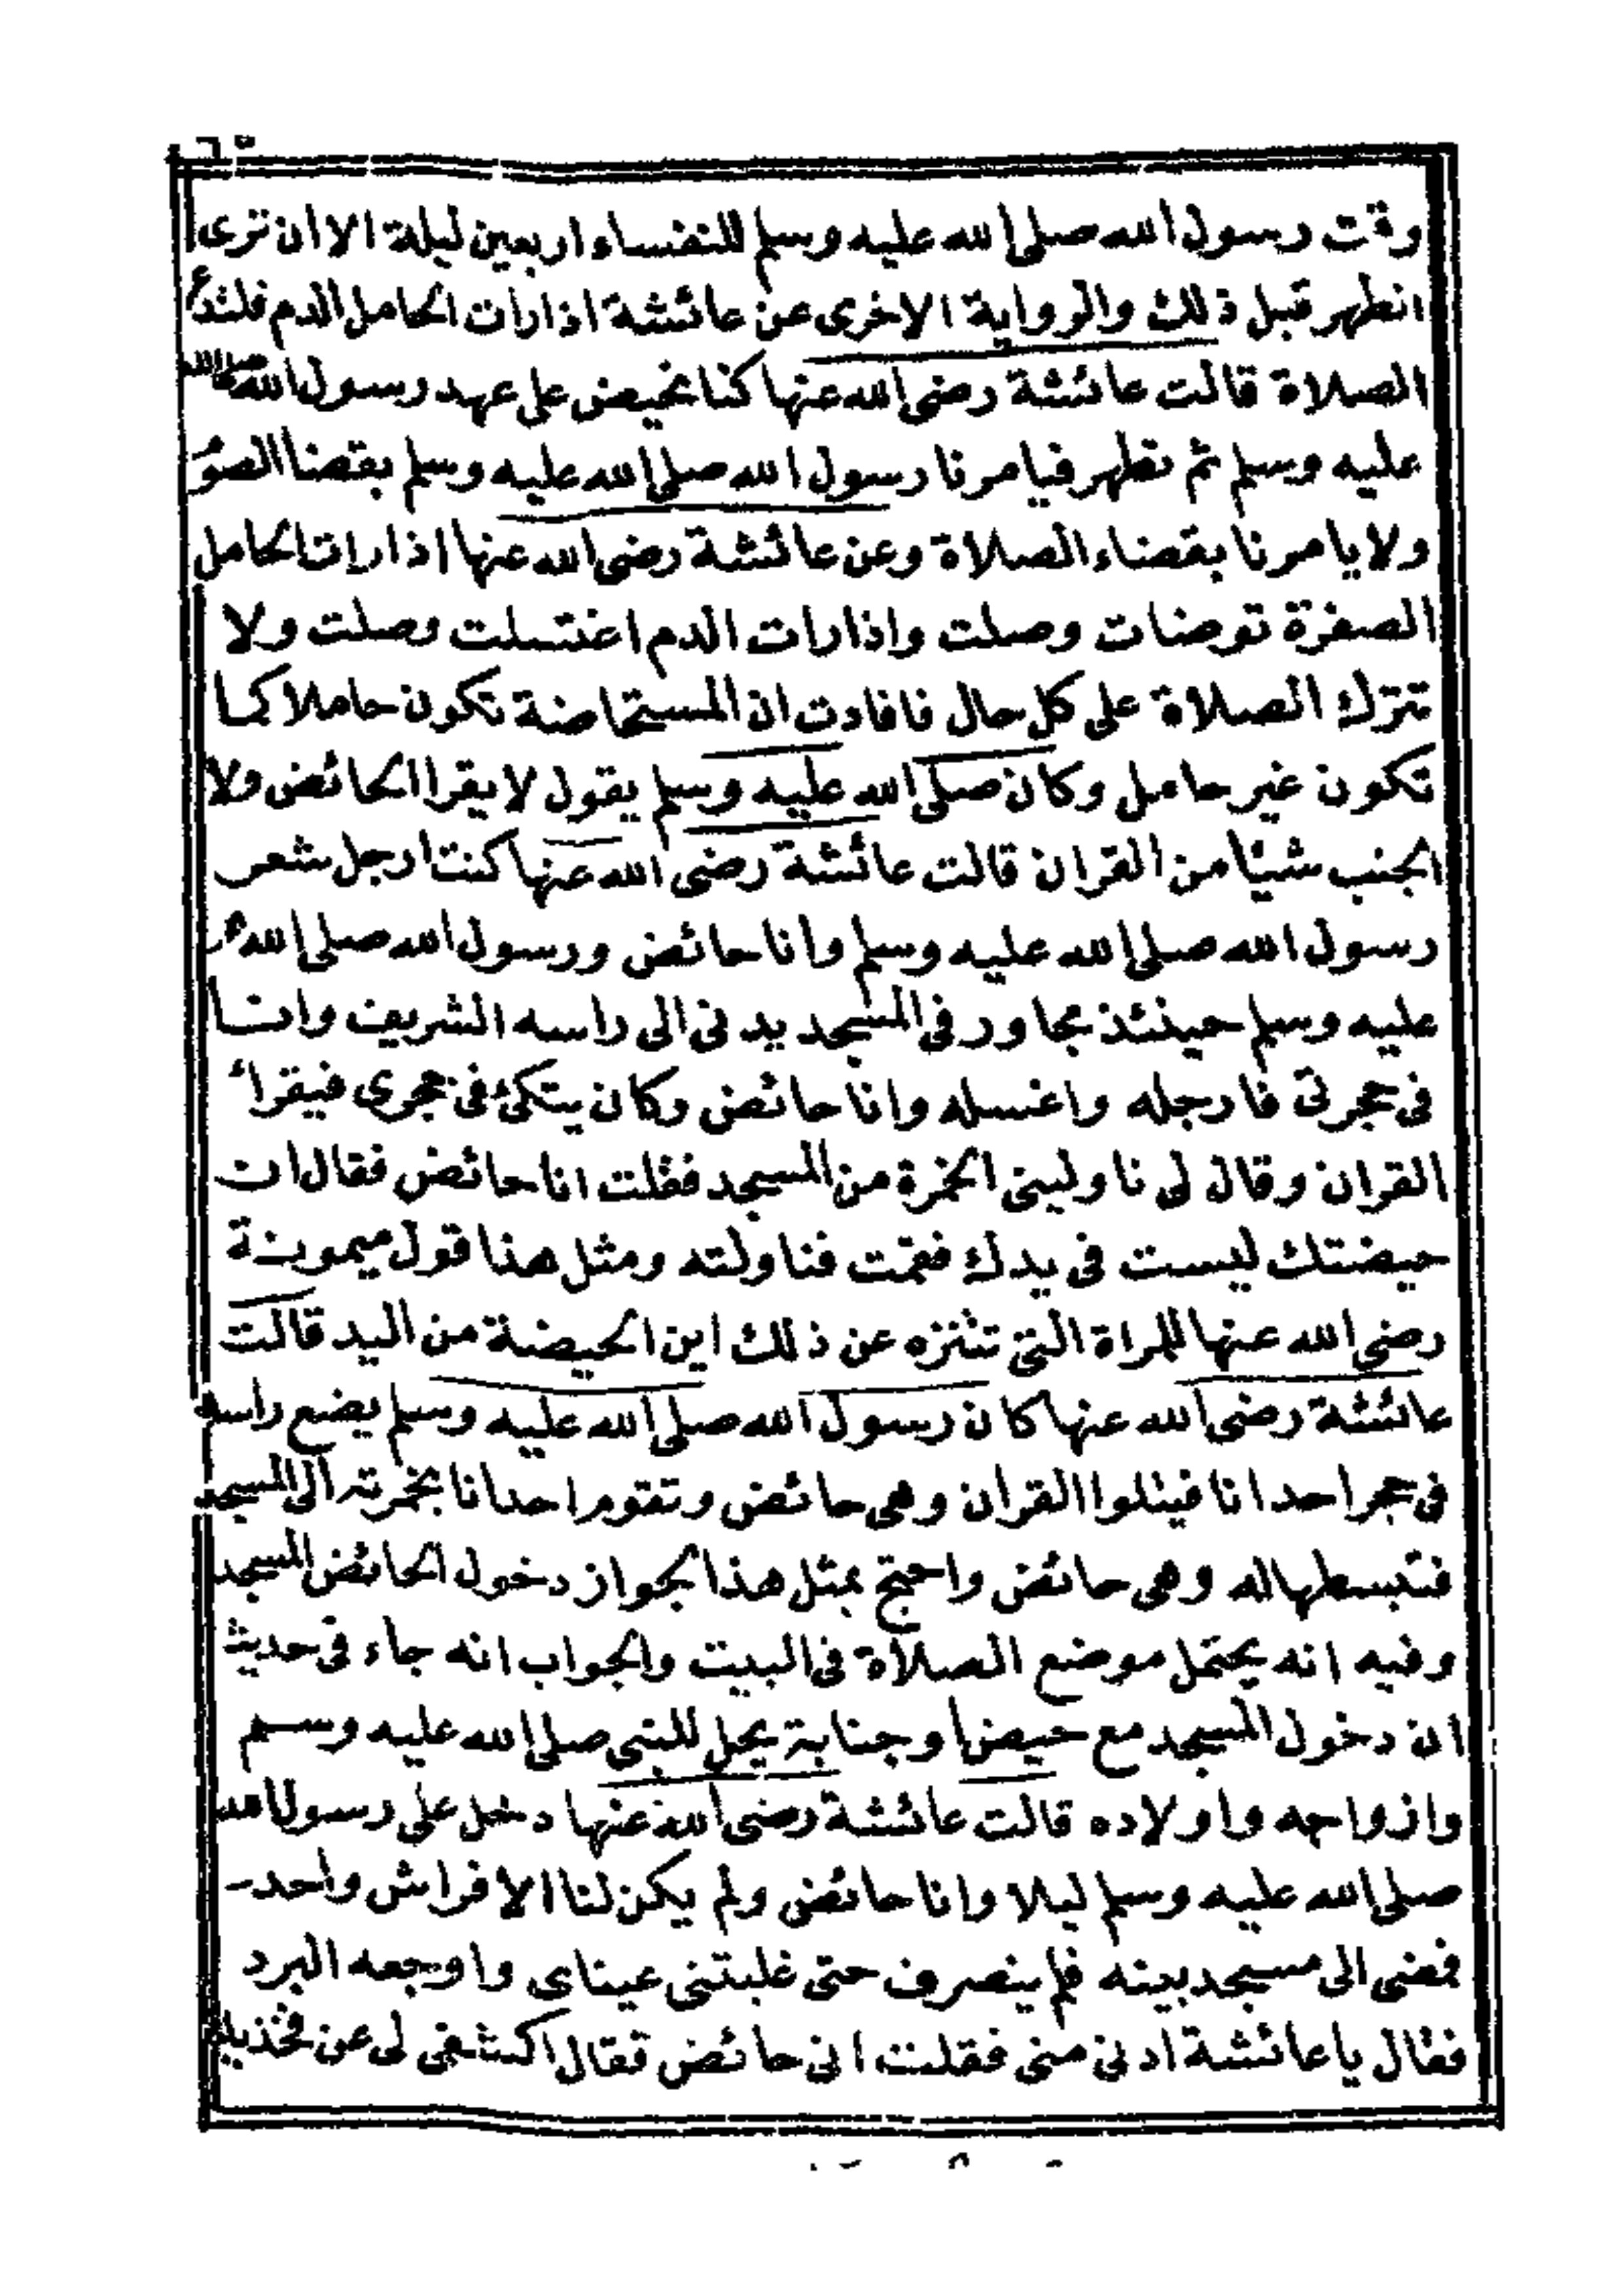 وقت رسول الله صلى الله عليه وسلم للنفساء اربعين ليلة الا ان ترى
انطهر قبل ذلك والرواية الاخرى عن عائشة اذا رات الحامل الدم فلتدع
الصلاة قالت عائشة رضى الله عنها كنا نحيض على عهد رسول الله صلى الله
عليه وسلم ثم نطهر فيامرنا رسول الله صلى الله عليه وسلم بقضا الصو
ولا يامرنا بقضاء الصلاة وعن عائشة رضى الله عنها اذا رات الحامل
الصفرة توضات وصلت واذا رات الدم اغتسلت وصلت ولا
تترك الصلاة على كل حال فافادت ان المستحاضة تكون حاملا كما
تكون غير حامل وكان صلى الله عليه وسلم يقول لا يقرا الحائض ولا
الجنب شيئا من القران قالت عائشة رضى الله عنها كنت ارجل شعر
رسول الله صلى الله عليه وسلم وانا حائض ورسول الله صلى الله
عليه وسلم حينئذ مجاور فى المسجد يدنى الى راسه الشريف وانا
فى حجرتى فارجله واغسله وانا حائض وكان يتكئ فى حجرى فيقرا
القران وقال لى ناولينى الخمرة من المسجد فقلت انا حائض فقال ان
حيضتك ليست فى يدك فقمت فناولته ومثل هذا قول ميمونة
رضى الله عنها للمراة التى تتنزه عن ذلك اين الحيضة من اليد قالت
عائشة رضى الله عنها كان رسول الله صلى الله عليه وسلم يضع راسه
فى حجر احدانا فيتلوا القران وهى حائض وتقوم احدانا بخمرته الى المسجد
فتبسطها له وهى حائض واحتج بمثل هذا لجواز دخول الحائض المسجد
وفيه انه يحتمل موضع الصلاة فى البيت والجواب انه جاء فى حديث
ان دخول المسجد مع حيض او جنابة يحل للنبى صلى الله عليه وسلم
وازواجه واولاده قالت عائشة رضى الله عنها دخل على رسول الله
صلى الله عليه وسلم ليلا وانا حائض ولم يكن لنا الا فراش واحد
فمضى الى مسجد بيته فلم ينصرف حتى غلبتنى عيناى واوجعه البرد
فقال يا عائشة ادنى منى فقلت انى حائض فقال اكشفى لى عن فخذيك